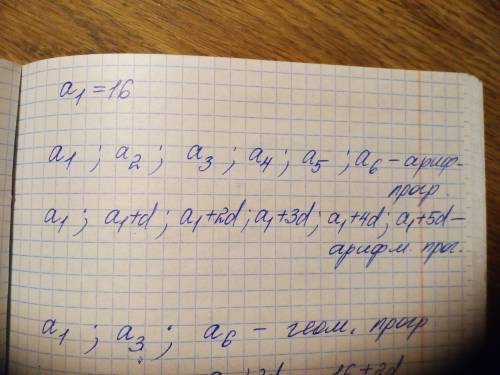 a₁ = 16
a₁ ; a₂ ; a₃ ; a₄ ; a₅ ; a₆ – ариф-
прогр.
a₁ ; a₁+d ; a₁+2d ; a₁+3d ; a₁+4d ; a₁+5d –
арифм. прог.
a₁ ; a₃ ; a₆ – геом. прогр.